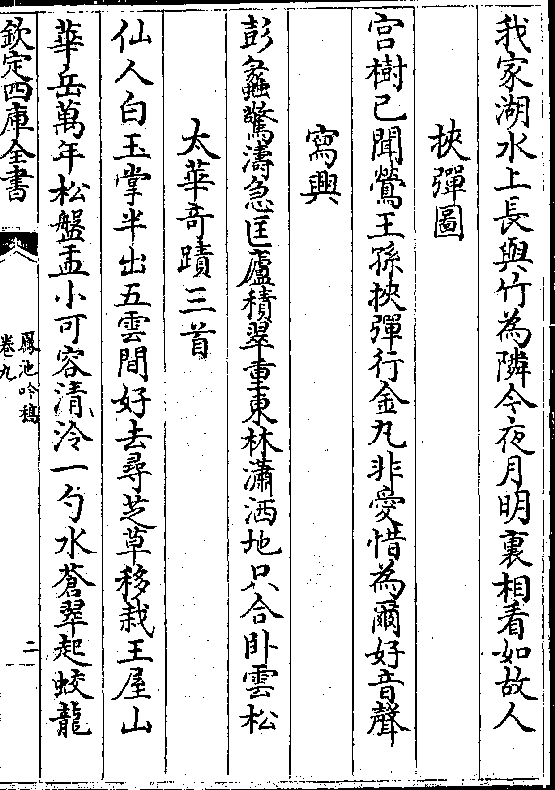 我家湖水上長與竹為隣今夜月明裏相看如故人
挾彈圖
宫樹已聞鶯王孫挾彈行金丸非愛惜為爾好音聲
寫興
彭蠡驚濤急匡廬積翠重東林瀟洒地只合卧雲松
太華奇蹟三首
仙人白玉掌半出五雲間好去尋芝草移栽王屋山
華岳萬年松盤盂小可容清泠一勺水蒼翠起蛟龍
欽定四庫全書
鳳池吟稿
卷九
二